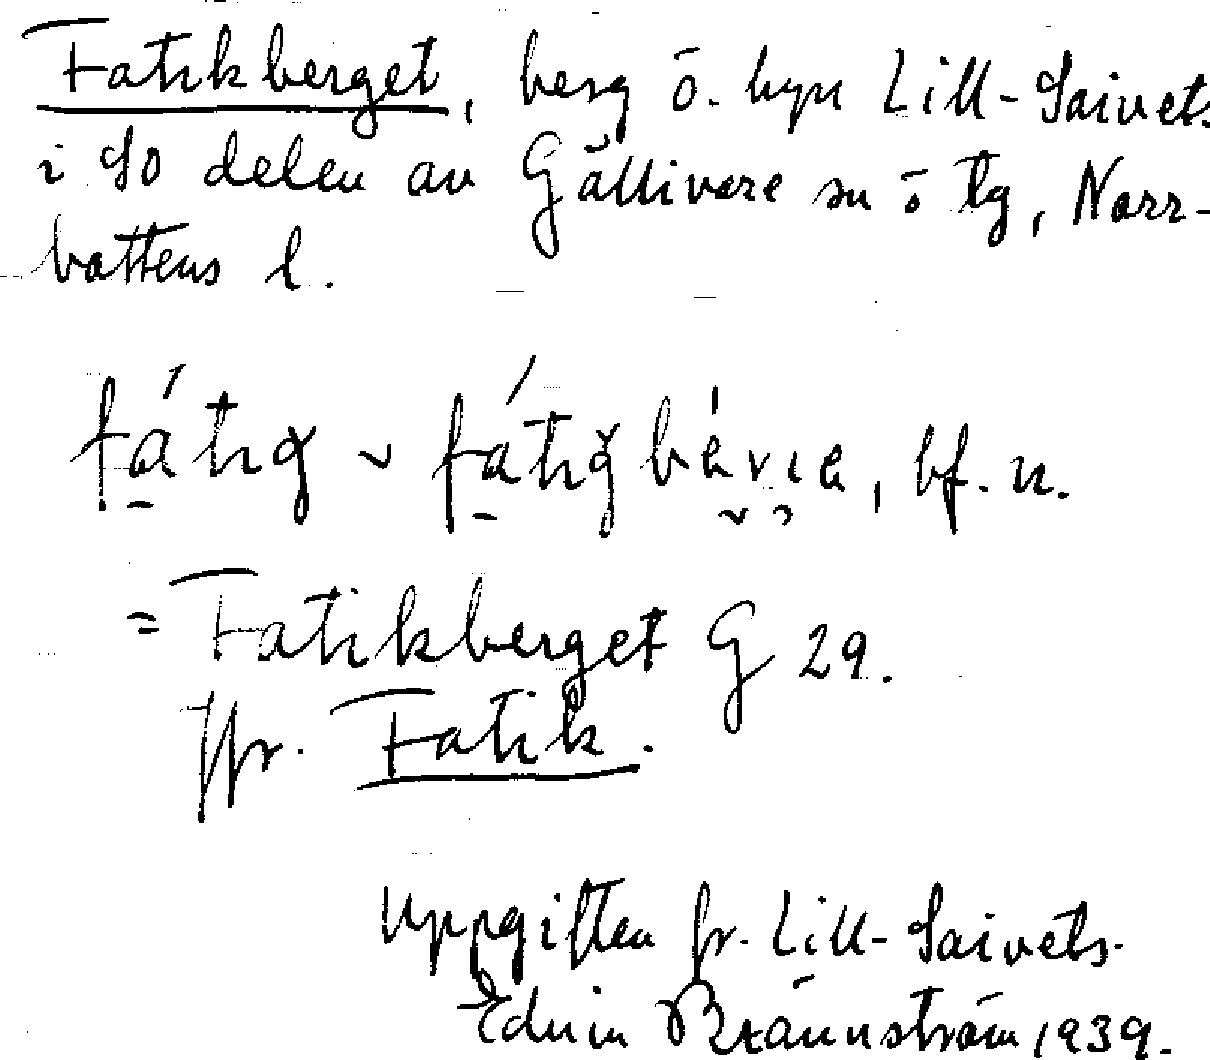 Fatikberget, berg ö. byn Lill-Saivets
i SO delen av Gällivare sn o tlg, Norr-
bottens l.
fátig ~ fátigbérie, bf. n.
= Fatikberget G 29.
Jfr. Fatik.
Uppgiften fr. Lill-Saivets.
Edvin Brännström 1939.